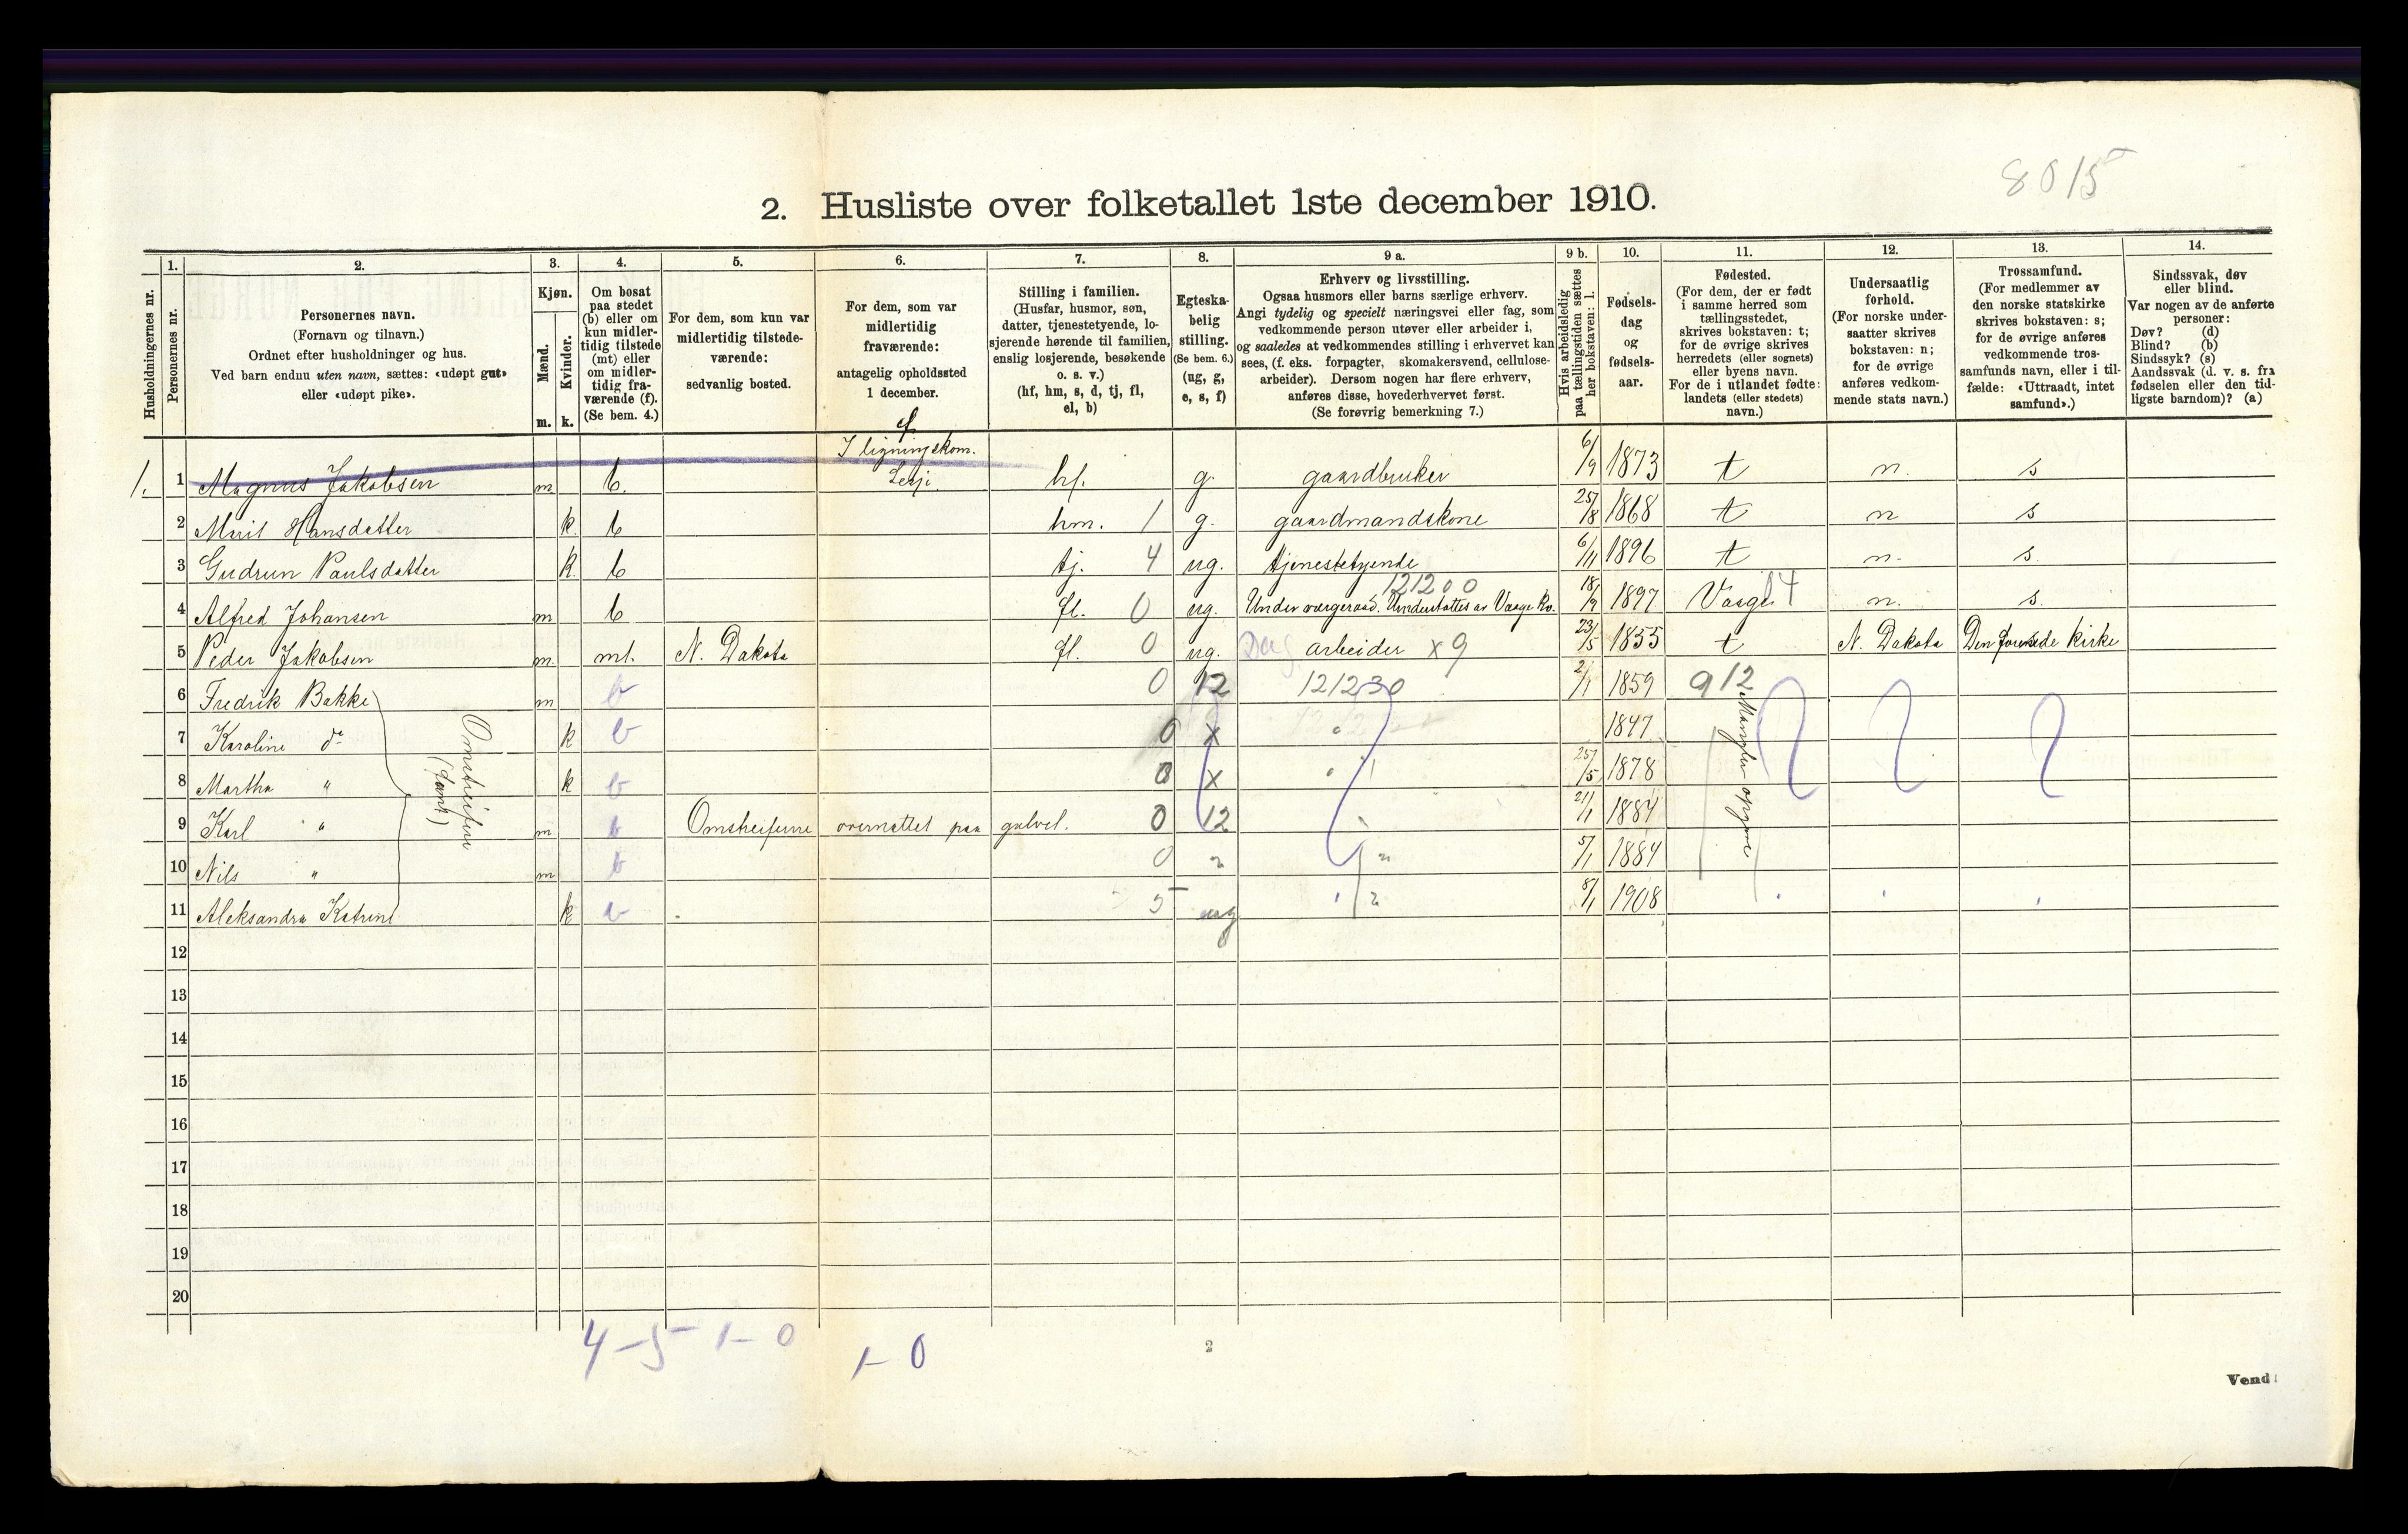 8015
2. Husliste over folketallet 1ste december 1910.
Husholdningernes nr.
1.
Personernes nr.
2.
Personernes navn.
(Fornavn og tilnavn.)
Ordnet efter husholdninger og hus.
Ved barn endnu uten navn, sættes: «udøpt gut»
eller «udøpt pike».
3.
Kjøn.
Mænd.
Kvinder.
m. k.
4.
Om bosat
paa stedet
(b) eller om
kun midler-
tidig tilstede
(mt) eller
om midler-
tidig fra-
værende (f).
(Se bem. 4.)
5.
For dem, som kun var
midlertidig tilstede-
værende:
sedvanlig bosted.
6.
For dem, som var
midlertidig
fraværende:
antagelig opholdssted
1 december.
7.
Stilling i familien.
(Husfar, husmor, søn,
datter, tjenestetyende, lo-
sjerende hørende til familien,
enslig losjerende, besøkende
o. s. v.)
(hf, hm, s, d, tj, fl,
el, b)
8.
Egteska-
belig
stilling.
(Se bem. 6.)
(ug, g,
e, s, f)
9 a.
Erhverv og livsstilling.
Ogsaa husmors eller barns særlige erhverv.
Angi tydelig og specielt næringsvei eller fag, som
vedkommende person utøver eller arbeider i,
og saaledes at vedkommendes stilling i erhvervet kan
sees, (f. eks. forpagter, skomakersvend, cellulose-
arbeider). Dersom nogen har flere erhverv,
anføres disse, hovederhvervet først.
(Se forøvrig bemerkning 7.)
9 b.
Hvis arbeidsledig
paa tællingstiden sættes
her bokstaven: l.
10.
Fødsels-
dag
og
fødsels-
aar.
11.
Fødested.
(For dem, der er født
i samme herred som
tællingsstedet,
skrives bokstaven: t;
for de øvrige skrives
herredets (eller sognets)
eller byens navn.
For de i utlandet fødte:
landets (eller stedets)
navn.)
12.
Undersaatlig
forhold.
(For norske under-
saatter skrives
bokstaven: n;
for de øvrige
anføres vedkom-
mende stats navn.)
13.
Trossamfund.
(For medlemmer av
den norske statskirke
skrives bokstaven: s;
for de øvrige anføres
vedkommende tros-
samfunds navn, eller i til-
fælde: «Uttraadt, intet
samfund».)
14.
Sindssvak, døv
eller blind.
Var nogen av de anførte
personer:
Døv? (d)
Blind? (b)
Sindssyk? (s)
Aandssvak (d. v. s. fra
fødselen eller den tid-
ligste barndom)? (a)
f
I ligningskom.
1. 1 Magnus Jakobsen m b. Lesje hf. g. gaardbruker 6/9 1873 t n. s
2 Marit Hansdatter k. b hm. 1 g. gaardmandskone 25/8 1868 t n s
3 Gudrun Paulsdatter k. b tj. 4 ug. tjenestetyende 6/11 1896 t n. s.
121200
4 Alfred Johansen m b fl. 0 ug. Under værgeraad. Understøttes av Vaage Ko. 18/9 1897 Vaage 14 n. s.
5 Peder Jakobsen m. mt. N. Dakota fl. 0 ug. Dag arbeider x9 23/5 1855 t N. Dakota Den forenede Kirke
6 Fredrik Bakke m b 0 12 121230 2/1 1859 912
7 Karoline do k b 0 x 1847
8 Martha " k b 0 x " 25/5 1878
9 Karl " m b Omstreifere overnattet paa gulvet. 0 12 21/1 1884
10 Nils " m b 0 " " 5/1 1884
11 Aleksandra Katrine k b 5 ug " 8/1 1908
Omstreifere
Mangler opgave
12
13
14
15
16
17
18
19
20
4-5 1-0
1-0
2
Vend!